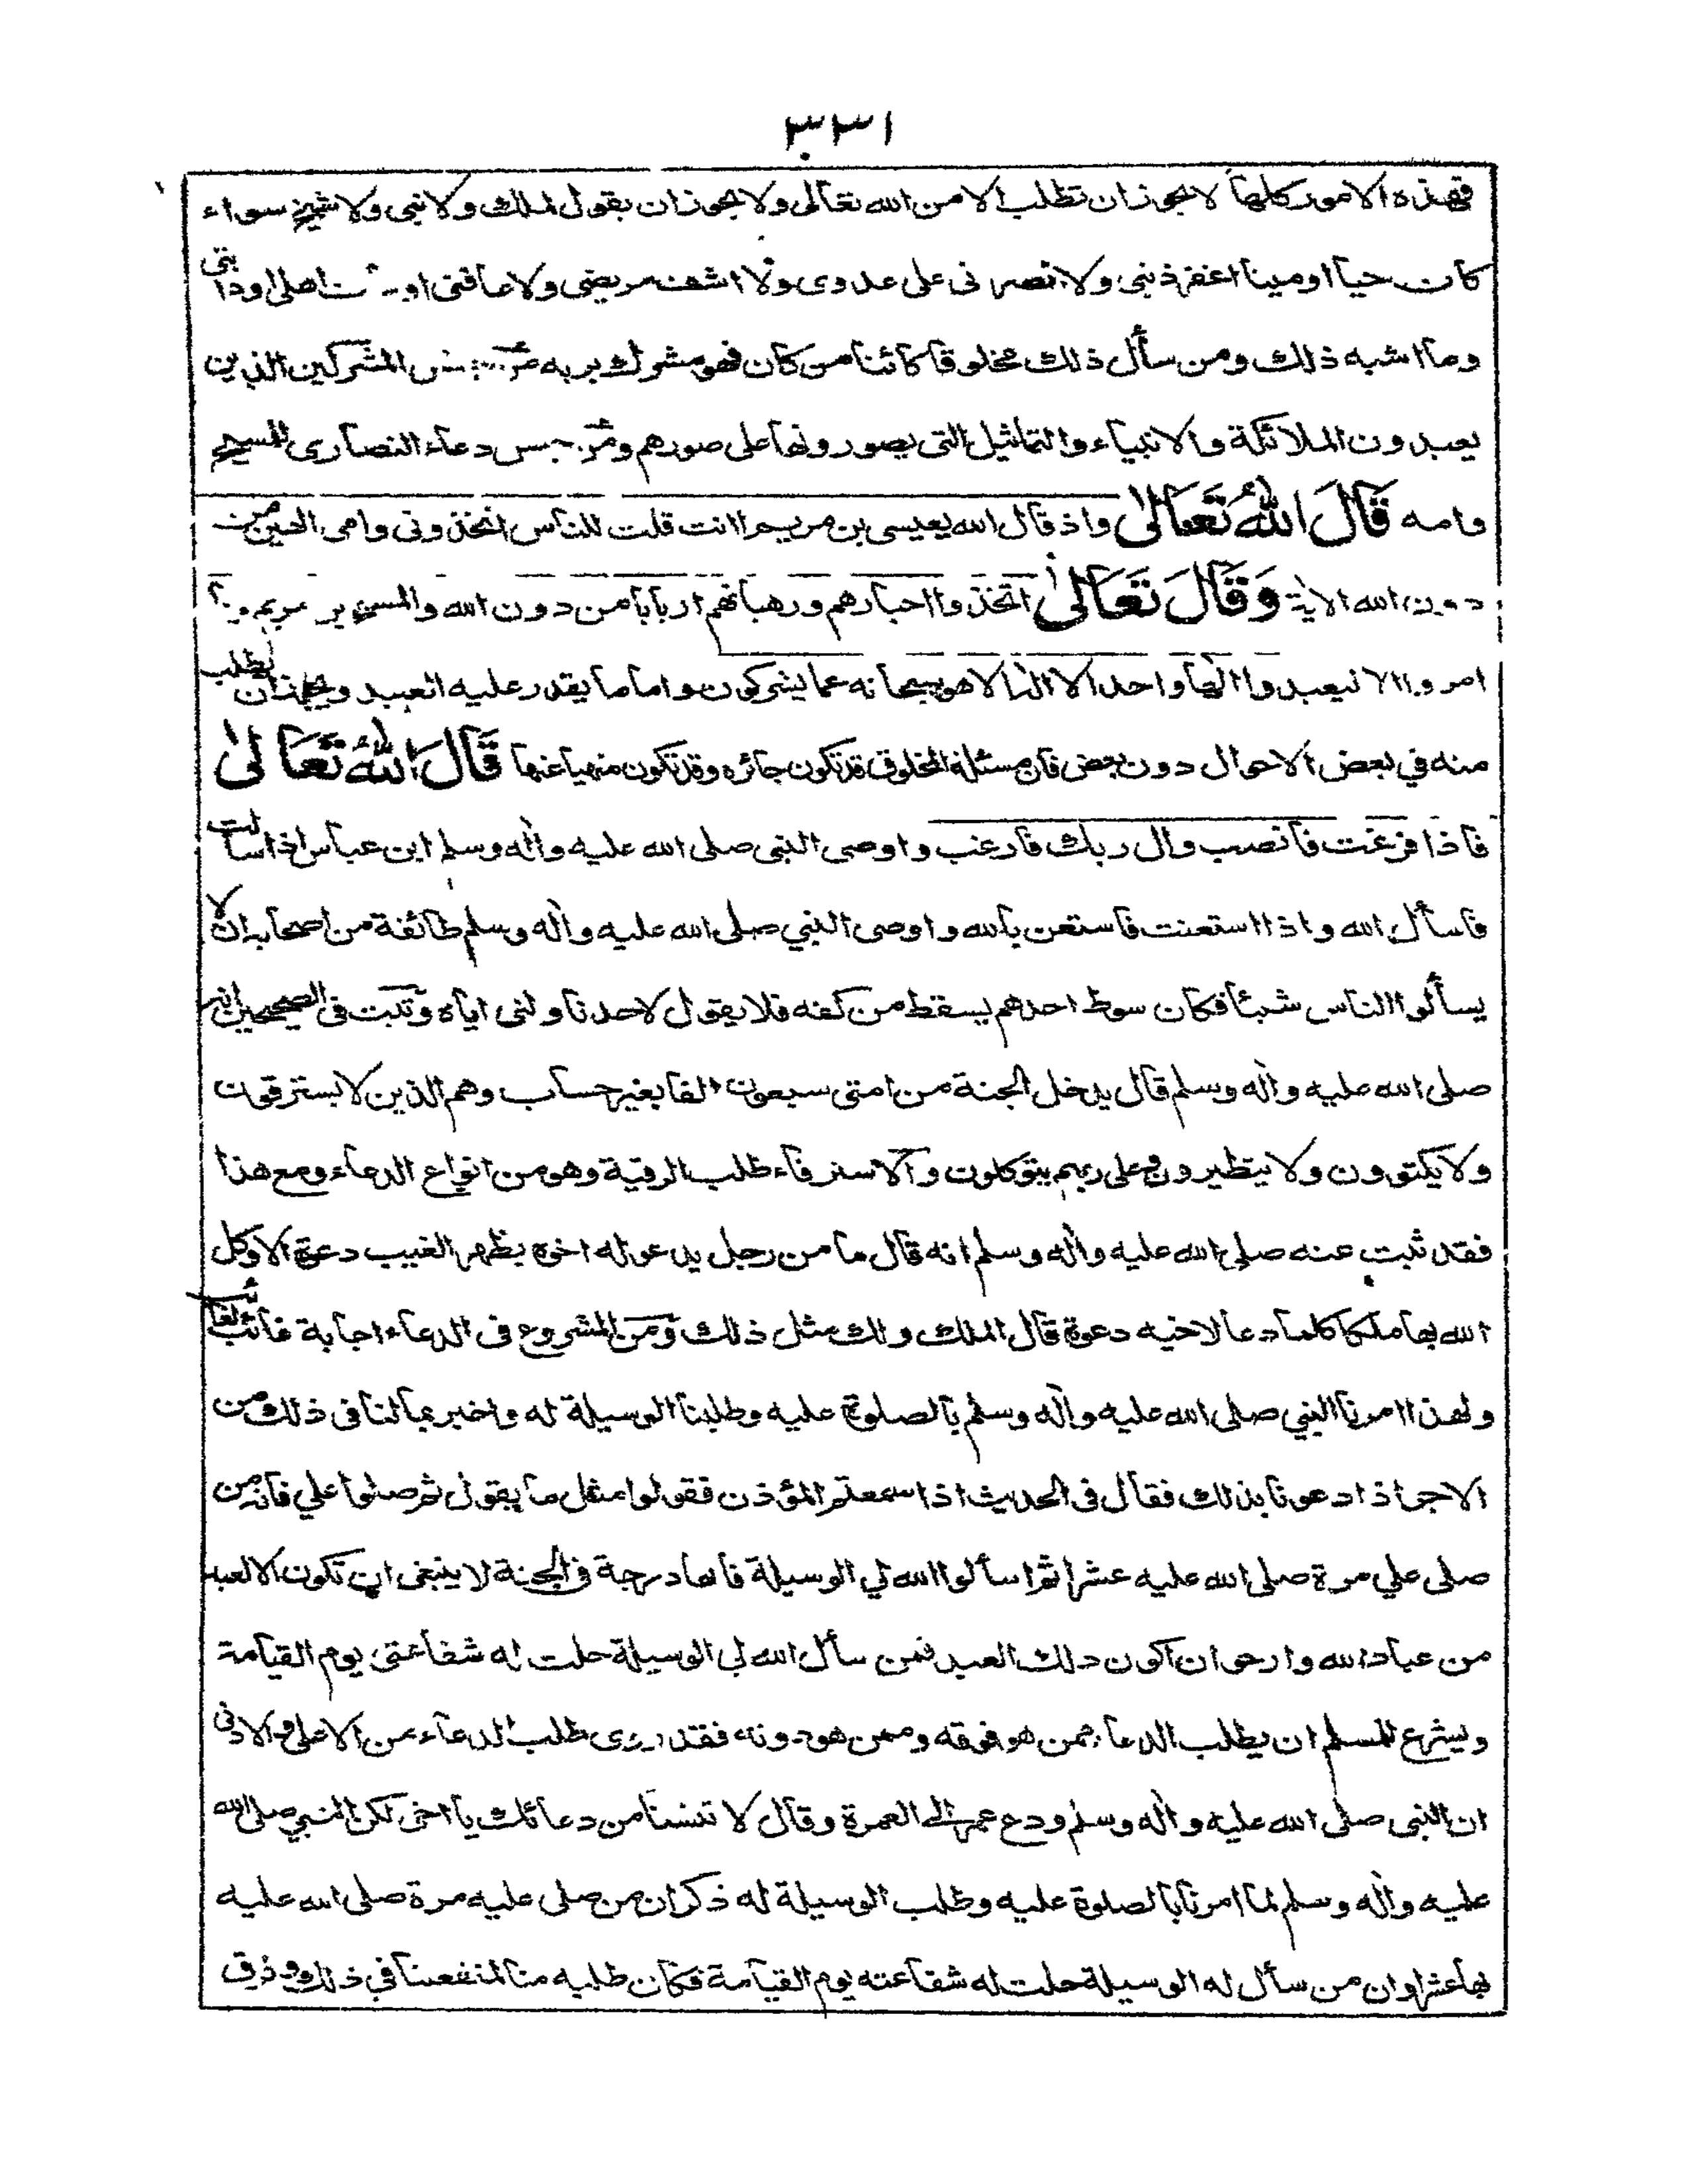 ٣٣١
فهذه الامور كلها لا يجوز ان تطلب الا من الله تعالى ولا يجوز ان يقول لملك ولا نبى ولا شيخ سواء
كان حيا او ميتا اغفر ذنبى ولا انصرنى على عدوى ولا اشف مريضى ولا عافنى او اهلى او دابتى
وما اشبه ذلك ومن سأل ذلك مخلوقا كائنا من كان فهو مشرك بربه من جنس المشركين الذين
يعبدون الملائكة والانبياء والتماثيل التى يصورونها على صورهم ومن جنس دعاء النصارى للمسيح
وامه قَالَ اللّٰهُ تَعَالىٰ واذ قال الله يعيسى بن مريم ءانت قلت للناس اتخذونى وامى الهين من
دون الله الاية وَقَالَ تَعَالىٰ اتخذوا احبارهم ورهبانهم اربابا من دون الله والمسيح بن مريم وما
امروا الا ليعبدوا الها واحدا لا اله الا هو سبحانه عما يشركون واما ما يقدر عليه العبد ويجوز ان يطلب
منه في بعض الاحوال دون بعض فان مسئلة المخلوق قد تكون جائزه وقد تكون منهيا عنها قَالَ اللّٰهُ تَعَالىٰ
فاذا فرغت فانصب والى ربك فارغب واوصى النبى صلى الله عليه واٰله وسلم ابن عباس اذا سألت
فاسأل الله واذا استعنت فاستعن بالله واوصى النبي صلى الله عليه واٰله وسلم طائفة من اصحابه ان لا
يسألوا الناس شيئا فكان سوط احدهم يسقط من كفه فلا يقول لاحد ناولنى اياه وثبت فى الصحيحين انه
صلى الله عليه واٰله وسلم قال يدخل الجنة من امتى سبعون الفا بغير حساب وهم الذين لا يسترقون
ولا يكتوون ولا يتطيرون وعلى ربهم يتوكلون والاسترقاء طلب الرقية وهو من انواع الدعاء ومع هذا
فقد ثبت عنه صلى الله عليه واٰله وسلم انه قال ما من رجل يدعو له اخوه بظهر الغيب دعوة الا وكل
الله بها ملكا كلما دعا لاخيه دعوة قال الملك ولك مثل ذلك ومن المشروع فى الدعاء اجابة غائب لغائب
ولهذا امرنا النبي صلى الله عليه واٰله وسلم بالصلوة عليه وطلبنا الوسيلة له واخبر بما لنا فى ذلك من
الاجر اذا دعونا بذلك فقال فى الحديث اذا سمعتم المؤذن فقولوا مثل ما يقول ثم صلوا علي فانه من
صلى علي مرة صلى الله عليه عشرا ثم اسألوا الله لي الوسيلة فانها درجة فى الجنة لا ينبغى ان تكون الا لعبد
من عباد الله وارجوا ان اكون ذلك العبد فمن سأل الله لي الوسيلة حلت له شفاعتى يوم القيامة
ويشرع للمسلم ان يطلب الدعاء ممن هو فوقه وممن هو دونه فقد روى طلب الدعاء من الاعلى والادنى
ان النبى صلى الله عليه واٰله وسلم ودع عمر الى العمرة وقال لا تنسنا من دعائك يا اخى لكن النبي صلى الله
عليه واٰله وسلم لما امرنا بالصلوة عليه وطلب الوسيلة له ذكر ان من صلى عليه مرة صلى الله عليه
بها عشرا وان من سأل له الوسيلة حلت له شفاعته يوم القيامة فكان طلبه منا لمنفعتنا في ذلك وفرق